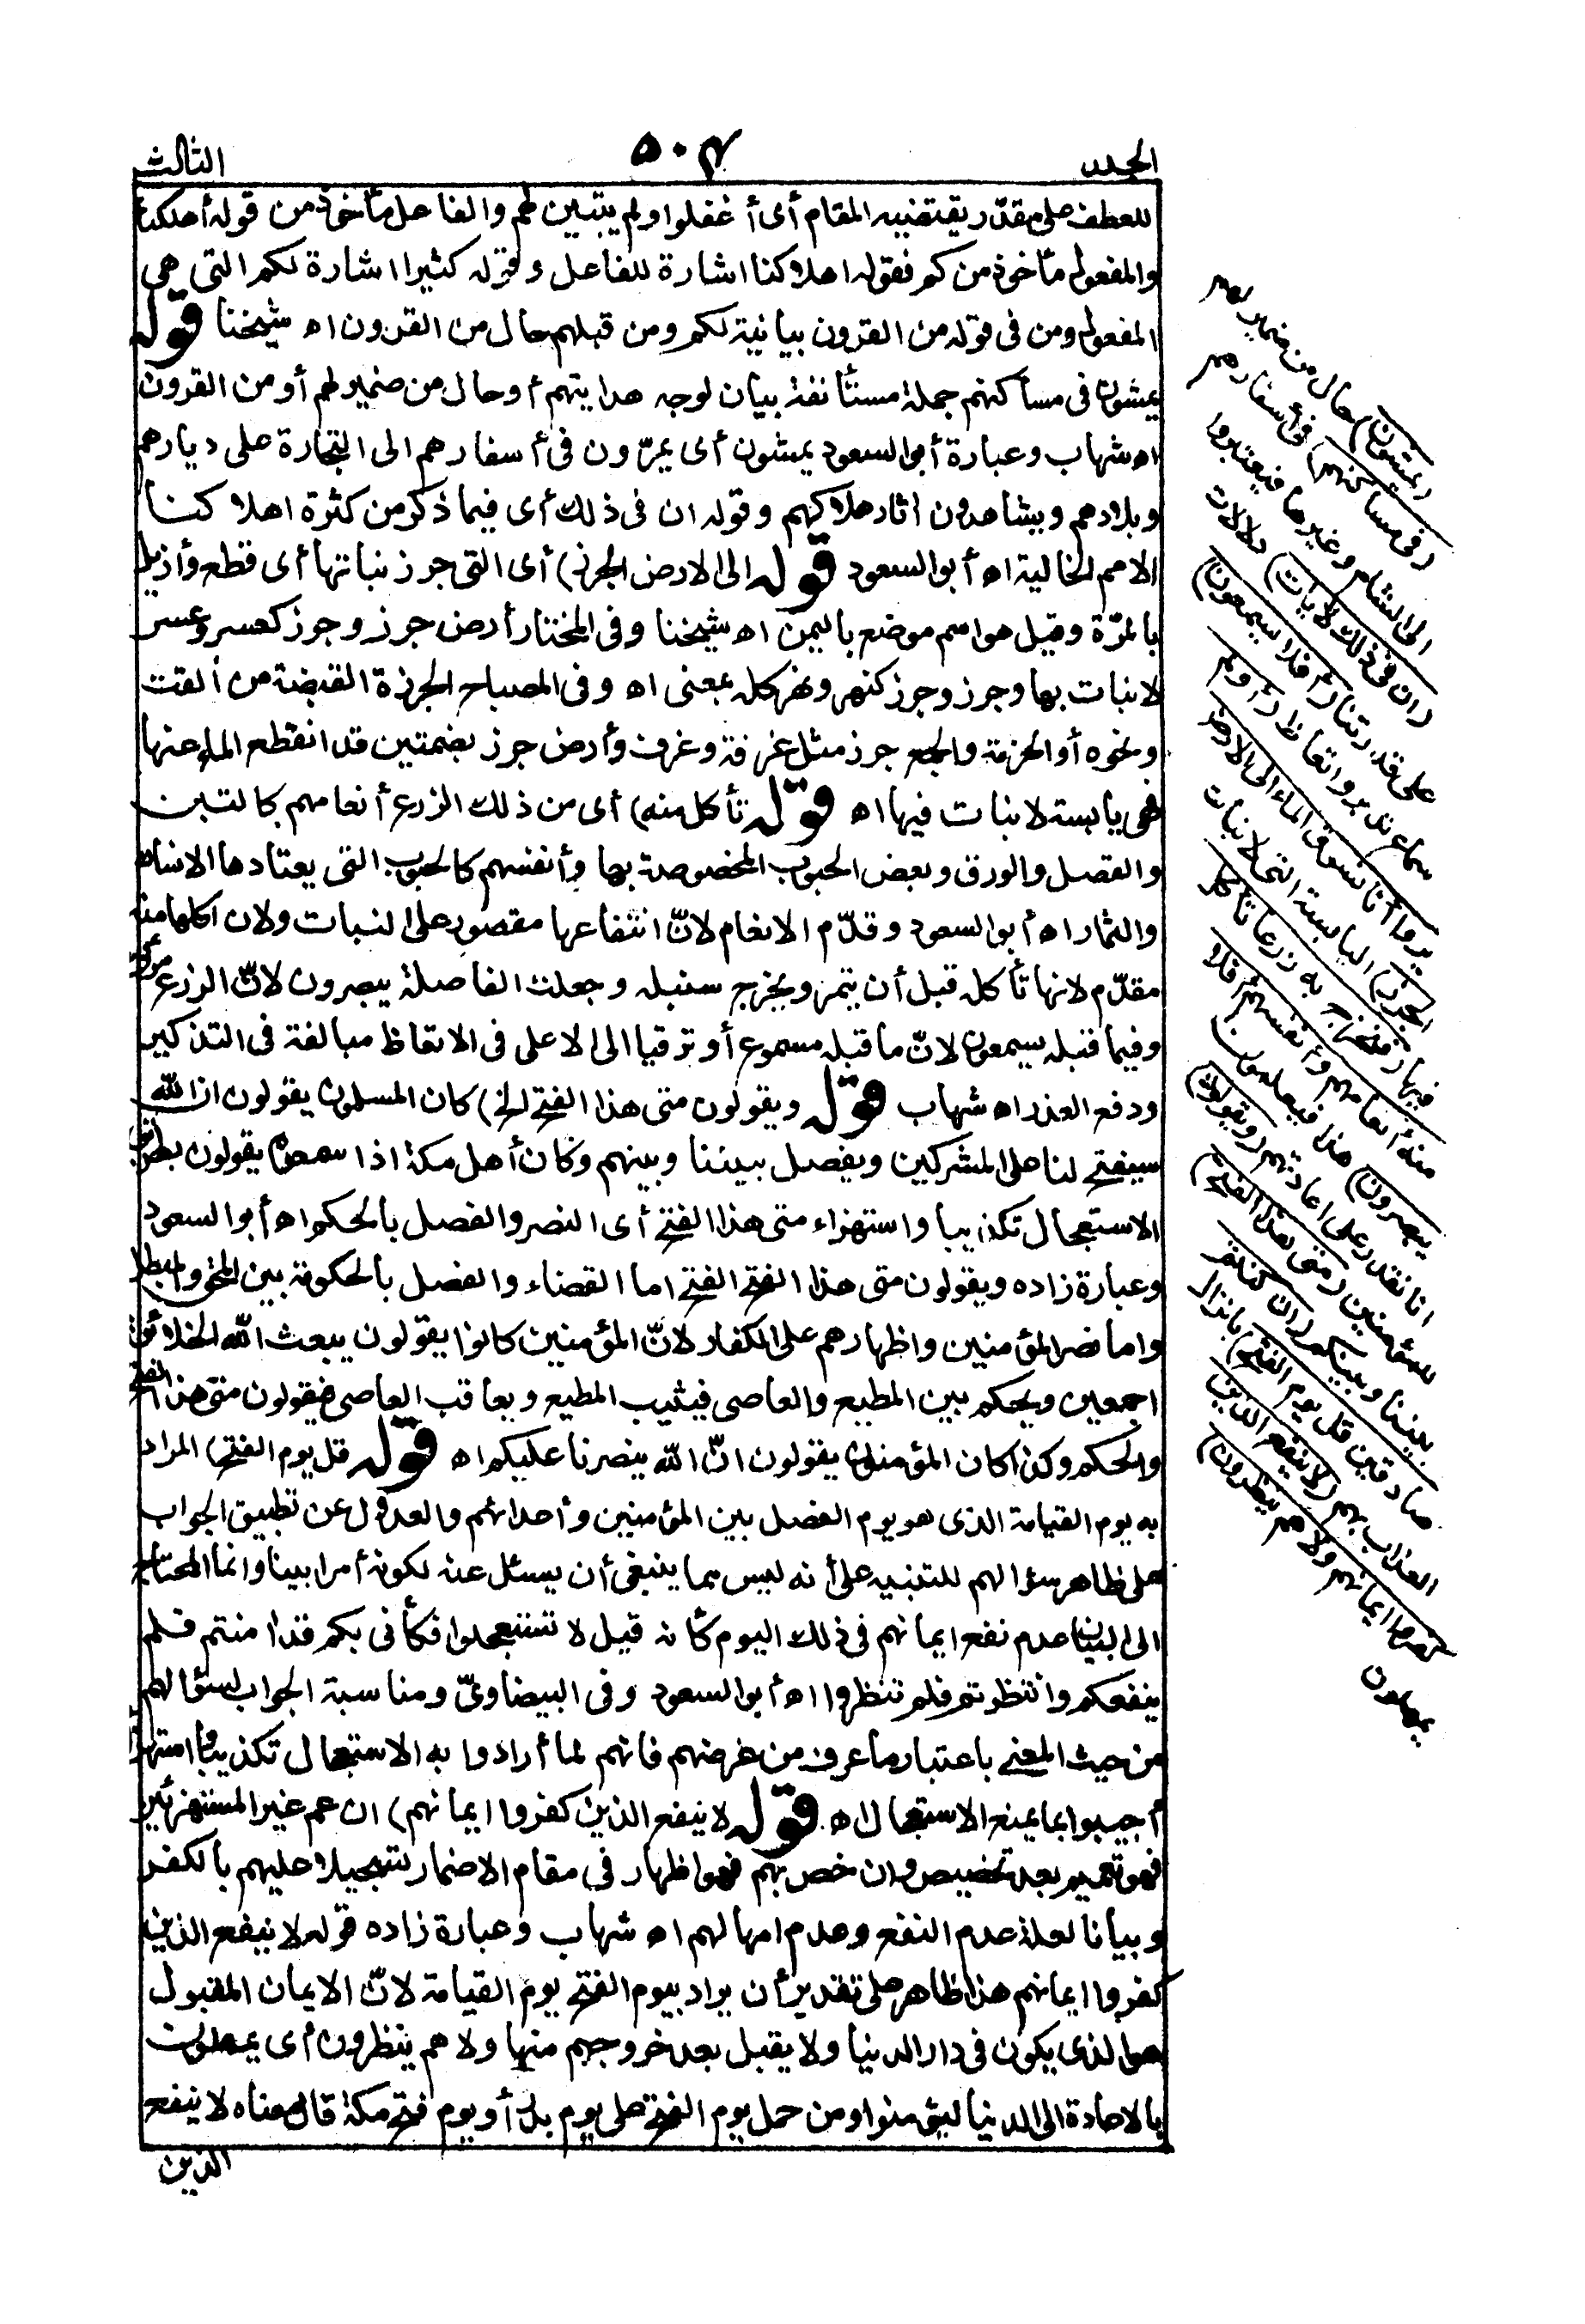 الجلد
٥٠٤
الثالث
للعطف على مقدّر يقتضيه المقام أى أغفلوا ولم يتبين لهم والفاعل مأخوذ من قوله أهلكنا
والمفعول مأخوذ من كم فقوله اهلاكنا اشارة للفاعل وقوله كثيرا اشارة لكم التى هى
المفعول ومن فى قوله من القرون بيانية لكم ومن قبلهم حال من القرون اه شيخنا قوله
يمشون فى مساكنهم جملة مستأنفة بيان لوجه هدايتهم أو حال من ضمير لهم أو من القرون
اه شهاب وعبارة أبو السعود يمشون أى يمرّون فى أسفارهم الى التجارة على ديارهم
وبلادهم ويشاهدون اثار هلاكهم وقوله ان فى ذلك أى فيما ذكر من كثرة اهلاكنا
الامم الخالية اه أبو السعود قوله الى الارض الجرز) أى التى جرز نباتها أى قطع وأزيل
بالمرّة وقيل هو اسم موضع باليمن اه شيخنا وفى المختار أرض جرز وجرز كعسر وعسر
لا نبات بها وجرز وجرز كنهر ونهر كله بمعنى اه وفى المصباح الجرزة القبضة من القت
ونحوه أو الحزمة والجمع جرز مثل غرفة وغرف وأرض جرز بضمتين قد انقطع الماء عنها
فهى يابسة لا نبات فيها اه قوله تأكل منه) أى من ذلك الزرع أنعامهم كالتبن
والقصل والورق وبعض الحبوب المخصوصة بها وأنفسهم كالحبوب التى يعتادها الانسان
والثمار اه أبو السعود وقدّم الانعام لانّ انتفاعها مقصور على النبات ولان اكلها منه
مقدّم لانها تأكله قبل أن يثمر ويخرج سنبله وجعلت الفاصلة يبصرون لانّ الزرع مرئى
وفيما قبله يسمعون لانّ ما قبله مسموع أو ترقيا الى الاعلى فى الاتعاظ مبالغة فى التذكير
ودفع العذر اه شهاب قوله ويقولون متى هذا الفتح الخ) كان المسلمون يقولون ان الله
سيفتح لنا على المشركين ويفصل بيننا وبينهم وكان أهل مكة اذا سمعوه يقولون بطريق
الاستعجال تكذيبا واستهزاء متى هذا الفتح أى النصر والفصل بالحكم اه أبو السعود
وعبارة زاده ويقولون متى هذا الفتح الفتح اما القضاء والفصل بالحكومة بين المحق والمبطل
واما نصر المؤمنين واظهارهم على الكفار لانّ المؤمنين كانوا يقولون يبعث الله الخلائق
اجمعين ويحكم بين المطيع والعاصى فيثيب المطيع ويعاقب العاصى فيقولون متى هذا الفتح
والحكم وكذا كان المؤمنون يقولون انّ الله ينصرنا عليكم اه قوله قل يوم الفتح) المراد
به يوم القيامة الذى هو يوم الفصل بين المؤمنين وأعدائهم والعدول عن تطبيق الجواب
على ظاهر سؤالهم للتنبيه على أنه ليس مما ينبغى أن يسئل عنه لكونه أمرا بينا وانما المحتاج
الى البيان عدم نفع ايمانهم فى ذلك اليوم كأنه قيل لا تستعجلوا فكأنى بكم قد امنتم فلم
ينفعكم وانتظرتم فلم تنظروا اه أبو السعود وفى البيضاوىّ ومناسبة الجواب لسؤالهم
من حيث المعنى باعتبار ما عرف من غرضهم فانهم لما أرادوا به الاستعجال تكذيبا واستهزاء
أجيبوا بما يمنع الاستعجال اه. قوله لا ينفع الذين كفروا ايمانهم) ان عم غير المستهزئين
فهو تعميم بعد تخصيص وان خص بهم فهو اظهار فى مقام الاضمار تسجيلا عليهم بالكفر
وبيانا لعلة عدم النفع وعدم امهالهم اه شهاب وعبارة زاده قوله لا ينفع الذين
كفروا ايمانهم هذا ظاهر على تقدير أن يراد بيوم الفتح يوم القيامة لانّ الايمان المقبول
هو الذى يكون فى دار الدنيا ولا يقبل بعد خروجهم منها ولا هم ينظرون أى يمهلون
بالاعادة الى الدنيا ليؤمنوا ومن حمل يوم الفتح على يوم بدر أو يوم فتح مكة قال معناه لا ينفع
الذين
(يمشون) حال من ضمير لهم
(فى مساكنهم) فى أسفارهم
الى الشام وغيرها فيعتبروا
(ان فى ذلك لايات) دلالات
على قدرتنا (أفلا يسمعون)
سماع تدبر واتعاظ (أولم
يروا أنا نسوق الماء الى الارض
الجرز) اليابسة التى لا نبات
فيها (فنخرج به زرعا تأكل
منه أنعامهم وأنفسهم أفلا
يبصرون) هذا فيعلمون
انا نقدر على اعادتهم (ويقولون)
للمؤمنين (متى هذا الفتح)
بيننا وبينكم (ان كنتم
صادقين قل يوم الفتح) بانزال
العذاب بهم (لا ينفع الذين
كفروا ايمانهم ولا هم ينظرون)
يمهلون